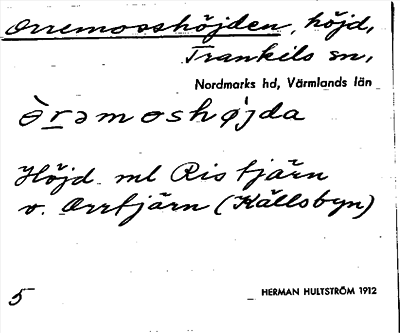 Orremosshöjden, höjd,
Trankils sn,
Nordmarks hd, Värmlands län
òrəmoshøjda
Höjd ml Ris tjärn
o. Orrtjärn (Källsbyn)
5
HERMAN HULTSTRÖM 1912